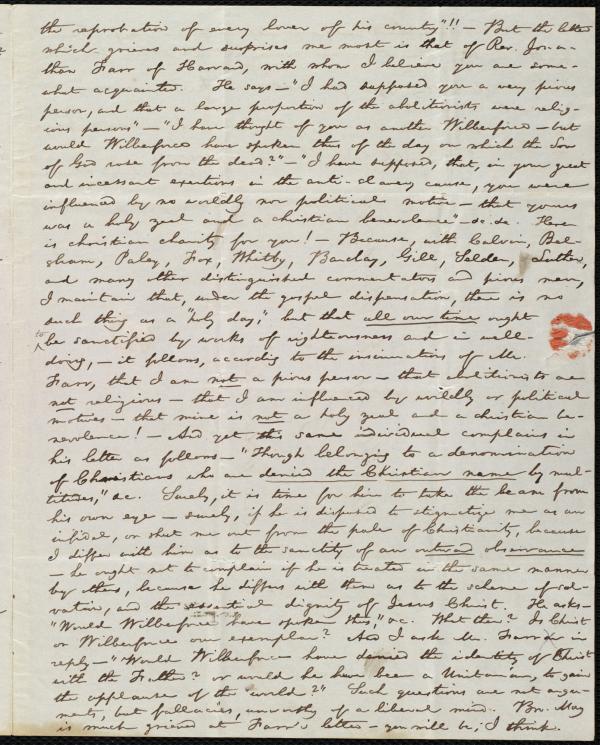 the reprobation of every lover of his country"!! — But the letter
which grieves and surprises me most is that of Rev. Jon-a-
than Farr of Harvard, with whom I believe you are some-
what acquainted. He says — "I had supposed you a very pious
person, and that a large proportion of the abolitionists were relig-
ious persons" — "I have thought of you as another Wilberforce — but
would Wilberforce have spoken thus of the day on which the Son
of God rose from the dead?" — "I have supposed, that, in your great
and incessant exertions in the anti-slavery cause, you were
influenced by no worldly nor political motive — that yours
was a holy zeal and a christian benevolence" — &c. &c. Here
is christian charity for you! — Because, with Calvin, Bel-
sham, Paley, Fox, Whitby, Barclay, Gill, Selden, Luther,
and many other distinguished commentators and pious men,
I maintain that, under the gospel dispensation, there is no
such thing as a "holy day," but that all our time ought
to be sanctified by works of righteousness and in well-
doing, — it follows, according to the insinuations of Mr.
Farr, that I am not a pious person — that abolitionists are
not religious — that I am influenced by worldly or political
motives — that mine is not a holy zeal and a christian be-
nevolence! — And yet this same individual complains in
his letter as follows — "Though belonging to a denomination
of Christians who are denied the Christian name by mul-
titudes," &c. Surely, it is time for him to take the beam from
his own eye — surely, if he is disposed to stigmatize me as an
infidel, or shut me out from the pale of Christianity, because
I differ with him as to the sanctity of an outward observance
— he ought not to complain if he is treated in the same manner
by others, because he differs with them as to the scheme of sal-
vation, and the essential dignity of Jesus Christ. He asks —
"Would Wilberforce have spoken thus," &c. What then? Is Christ
or Wilberforce our exemplar? And I ask Mr. Farr in
reply — "Would Wilberforce have denied the identity of Christ
with the Father? or would he have been a Unitarian, to gain
the applause of the world?" Such questions are not argu-
ments, but fallacies, unworthy of a liberal mind. Bro. May
is much grieved at Farr's letter — you will be, I think.